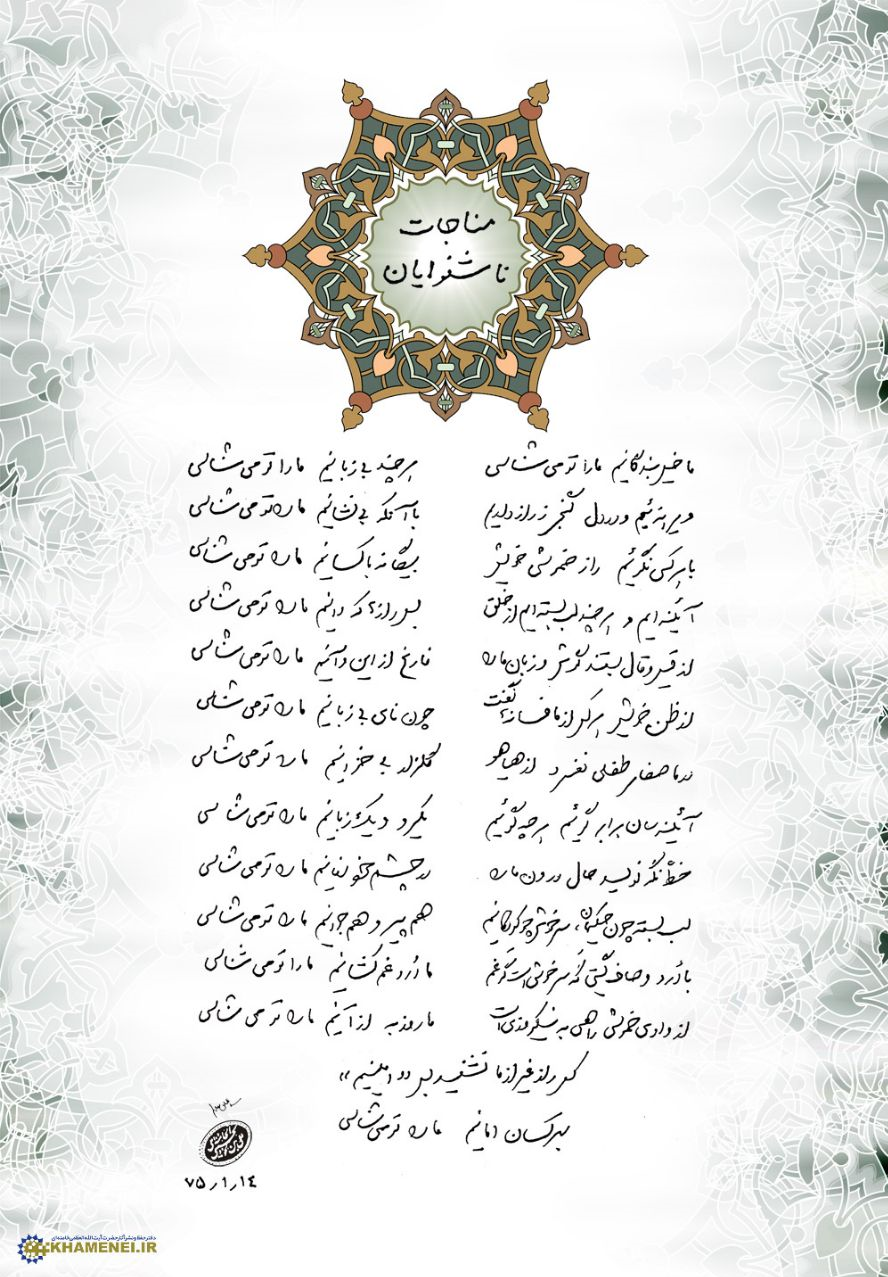 مناجات
ناشنوایان
ما خیل بندگانیم ما را تو می‌شناسی هر چند بی زبانیم ما را تو می‌شناسی
ویرانه‌ئیم و در دل گنجی ز راز داریم با آنکه بی نشانیم ما را تو می‌شناسی
با هر کسی نگوئیم راز خموشی خویش بیگانه با کسانیم ما را تو می‌شناسی
آئینه‌ایم و هر چند لب بسته‌ایم از خلق بس رازها که دانیم ما را تو می‌شناسی
از قیل و قال بستند گوش و زبان ما را فارغ از این و آنیم ما را تو می‌شناسی
از ظن خویش هر کس از ما فسانه‌ها گفت چون نای بی زبانیم ما را تو می‌شناسی
در ما صفای طفلی نفسرد از هیاهو گلزار بی خزانیم ما را تو می‌شناسی
آئینه‌سان برابر گوئیم هر چه گوئیم یکرو و یک زبانیم ما را تو می‌شناسی
خط نگه نویسد حال درون ما را در چشم خود نهانیم ما را تو می‌شناسی
لب بسته چون حکیمان، سرخوش چو کودکانیم هم پیر و هم جوانیم ما را تو می‌شناسی
با دُرد و صاف گیتی گه سرخوش است گه غم ما دُرد غم کشانیم ما را تو می‌شناسی
از وادی خموشی راهی به نیکروزی است ما روز به از آنیم ما را تو می‌شناسی
کس راز غیر از ما نشنید بس «امینیم»
بهر کسان امانیم ما را تو می‌شناسی
۷۵/۱/۱۴
دفتر حفظ و نشر آثار حضرت آیت‌الله العظمی خامنه‌ای
KHAMENEI.IR